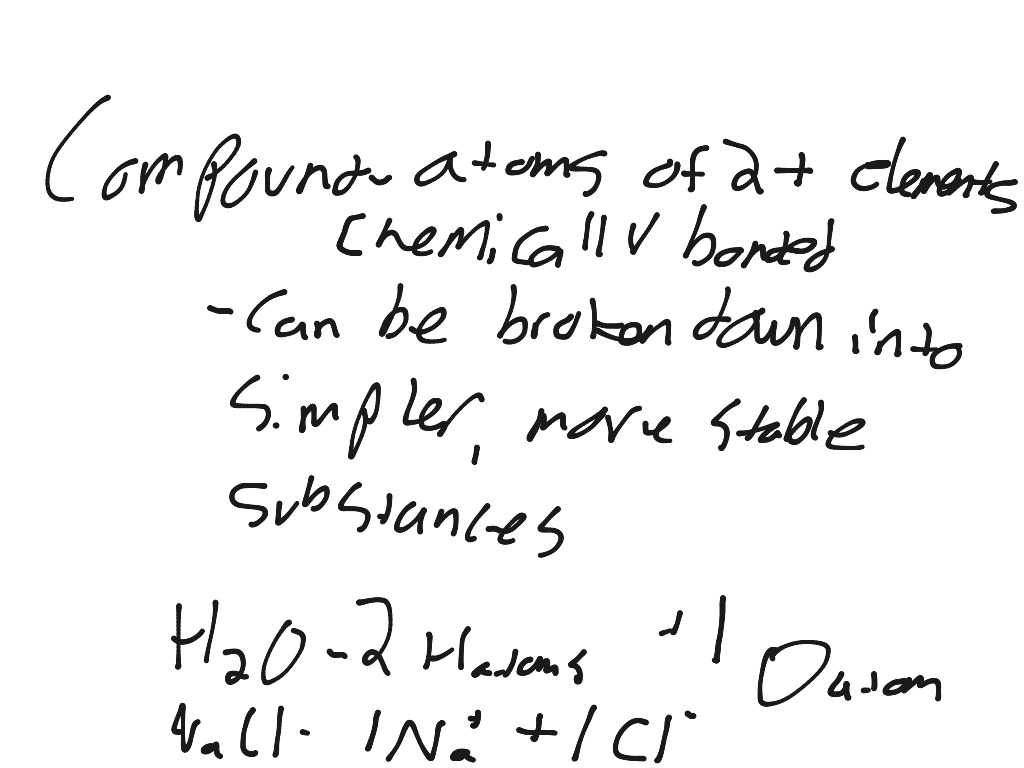 Compound - atoms of 2+ elements
chemically bonded
- Can be broken down into
simpler, more stable
substances
H₂O - 2 H atoms + 1 O atom
NaCl - 1 Na⁺ + 1 Cl⁻